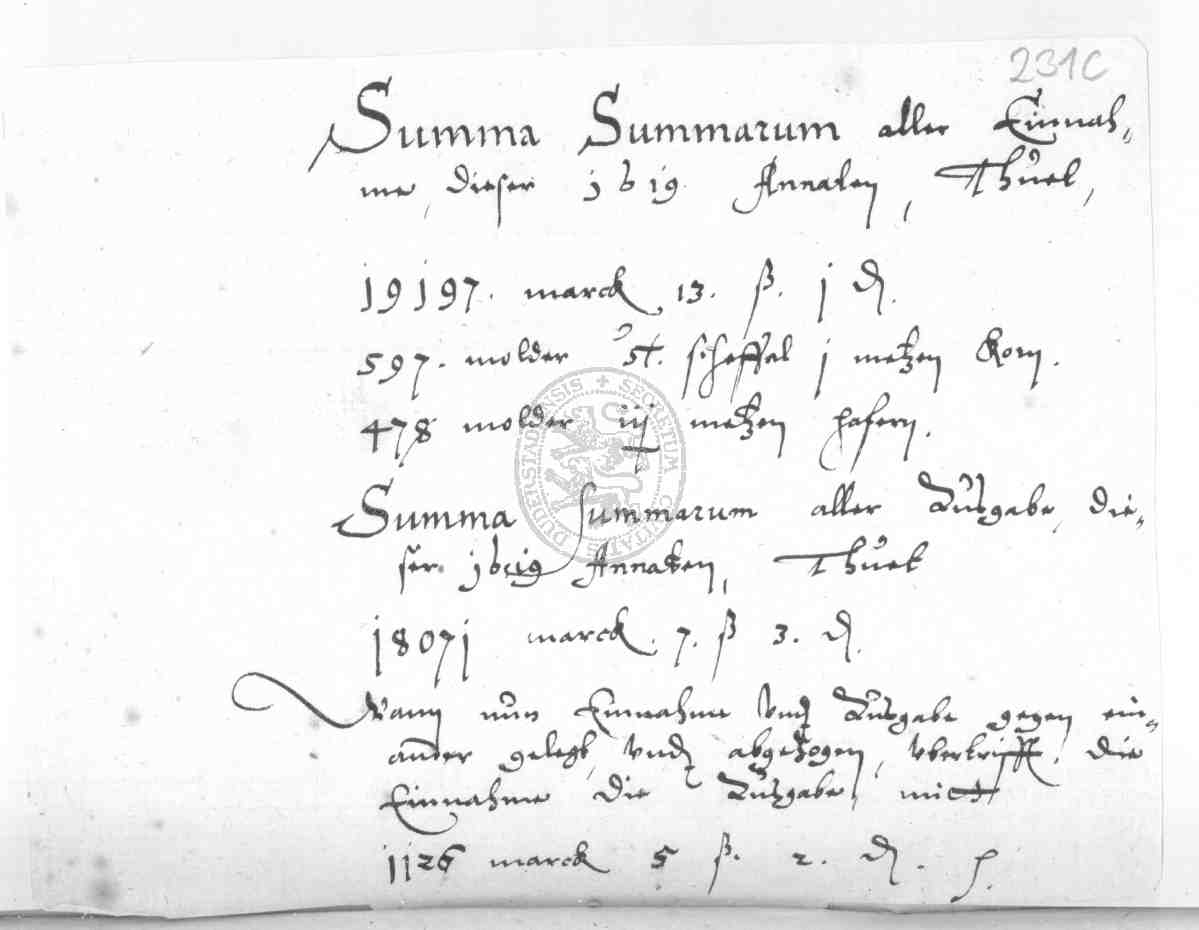 231c
Summa Summarum aller Einnah-
me, dieser 1619 Annaten, Thuet,
19197. marck 13. ß. j d.
597. molder scheffel j metzen Korn.
478 molder iij metzen hafern.
Summa summarum aller Außgabe, die-
ser 1619 Annaten, Thuet
18071 marck. 7. ß 3. d.
Wann nun Einnahme vnd Außgabe gegen ein-
ander gelegt, vnd abgezogen, vbertrifft, die
Einnahme die Außgabe, mitt
1126 marck 5 ß. 2. d.
SECRETUM CIVITATIS DUDERSTADENSIS